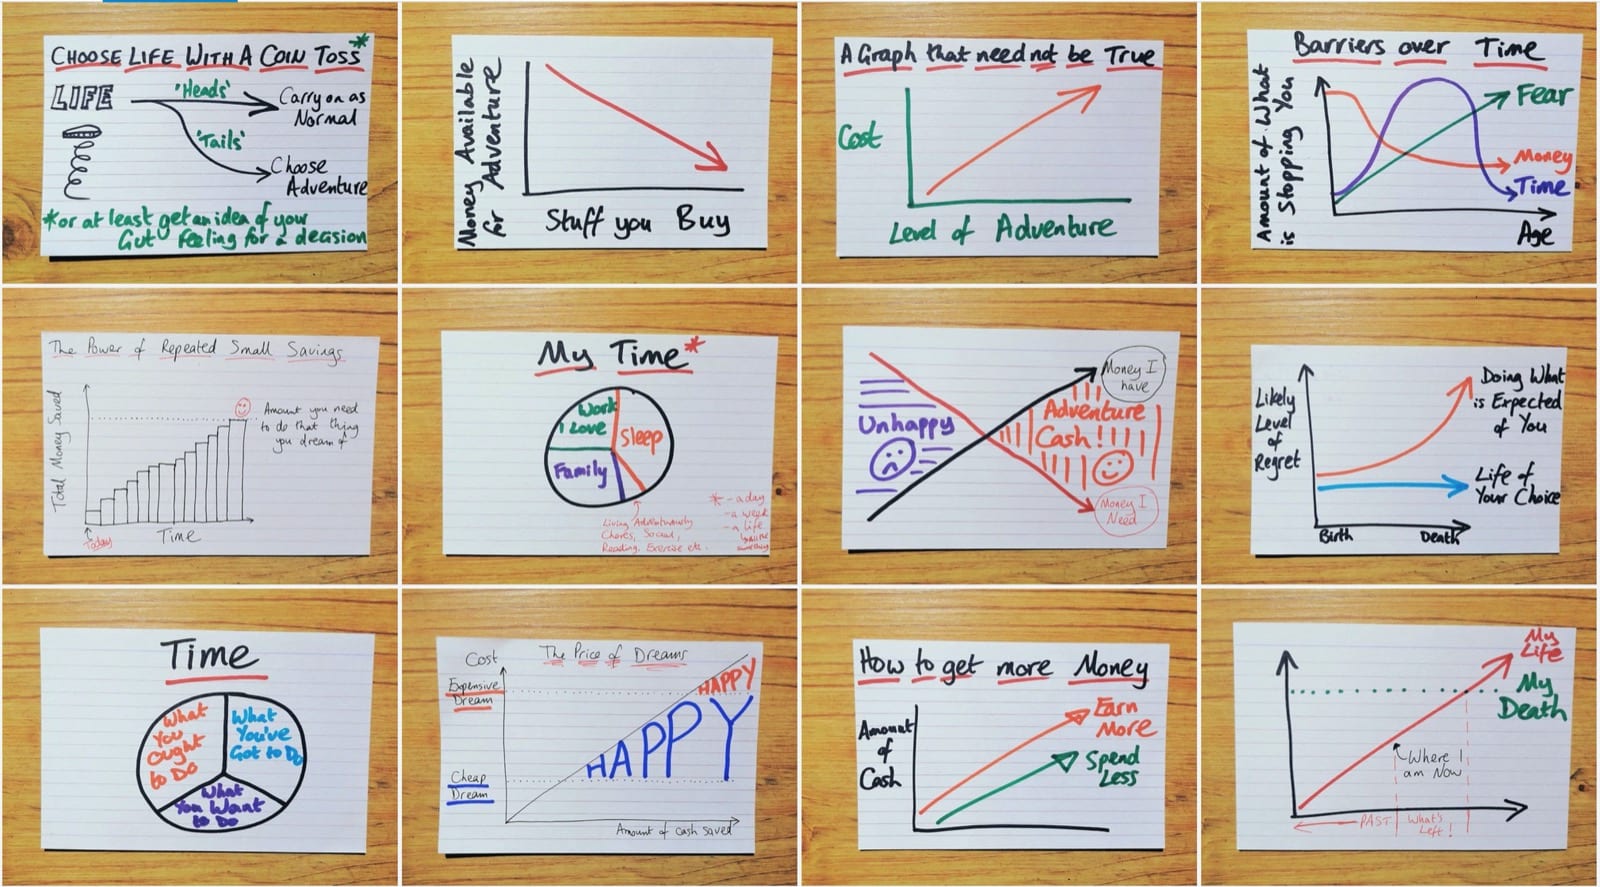 CHOOSE LIFE WITH A COIN TOSS*
LIFE
'Heads'
Carry on as
Normal
'Tails'
Choose
Adventure
*or at least get an idea of your
Gut Feeling for a decision
Money Available
for Adventure
Stuff you Buy
A Graph that need not be True
Cost
Level of Adventure
Barriers over Time
Amount of What
is Stopping You
Fear
Money
Time
Age
The Power of Repeated Small Savings
Total Money Saved
Amount you need
to do that thing
you dream of
Today
Time
My Time*
Work
I Love
Sleep
Family
Living Adventurously
Chores, Social,
Reading, Exercise etc.
* - a day
- a week
- a life
Money I
have
Unhappy
Adventure
Cash!
Money I
Need
Likely
Level
of
Regret
Doing What
is Expected
of You
Life of
Your Choice
Birth
Death
Time
What
You
Ought
to Do
What
You've
Got to Do
What
You Want
to Do
The Price of Dreams
Cost
Expensive
Dream
HAPPY
HAPPY
Cheap
Dream
Amount of cash saved
How to get more Money
Amount
of
Cash
Earn
More
Spend
Less
My
Life
My
Death
Where I
am Now
PAST
What's
Left!